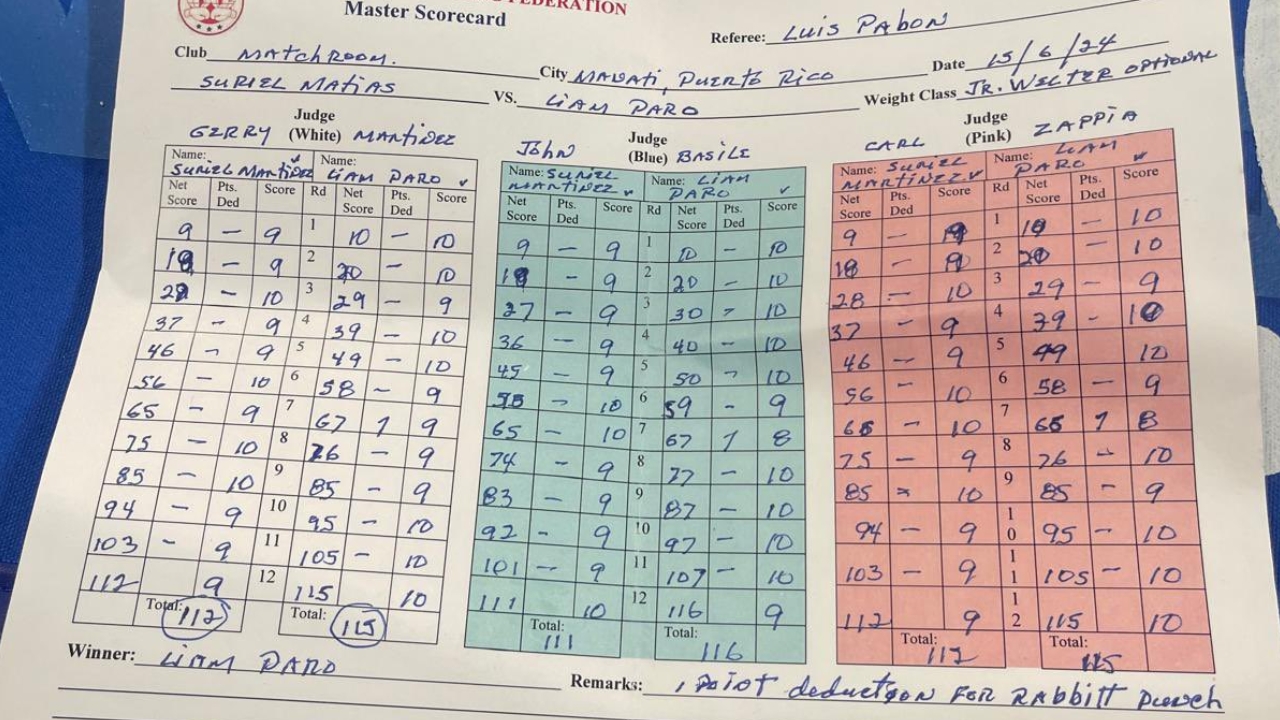 FEDERATION
Master Scorecard
Referee: Luis Pabon
Club MATCHROOM.
City MANATI, PUERTO RICO
Date 15/6/24
SURIEL MATIAS VS. LIAM PARO
Weight Class JR. WELTER OPTIONAL
Judge
GERRY (White) MARTINEZ
Name: SURIEL MARTINEZ Name: LIAM PARO
Net Score Pts. Ded Score Rd Net Score Pts. Ded Score
9 – 9 1 10 – 10
18 – 9 2 20 – 10
28 – 10 3 29 – 9
37 – 9 4 39 – 10
46 – 9 5 49 – 10
56 – 10 6 58 – 9
65 – 9 7 67 1 9
75 – 10 8 76 – 9
85 – 10 9 85 – 9
94 – 9 10 95 – 10
103 – 9 11 105 – 10
112 9 12 115 10
Total: 112 Total: 115
Judge
JOHN (Blue) BASILE
Name: SURIEL MARTINEZ Name: LIAM PARO
Net Score Pts. Ded Score Rd Net Score Pts. Ded Score
9 – 9 1 10 – 10
18 – 9 2 20 – 10
27 – 9 3 30 – 10
36 – 9 4 40 – 10
45 – 9 5 50 – 10
55 – 10 6 59 – 9
65 – 10 7 67 1 8
74 – 9 8 77 – 10
83 – 9 9 87 – 10
92 – 9 10 97 – 10
101 – 9 11 107 – 10
111 10 12 116 9
Total: 111 Total: 116
Judge
CARL (Pink) ZAPPIA
Name: SURIEL MARTINEZ Name: LIAM PARO
Net Score Pts. Ded Score Rd Net Score Pts. Ded Score
9 – 9 1 10 – 10
18 – 9 2 20 – 10
28 – 10 3 29 – 9
37 – 9 4 39 – 10
46 – 9 5 49 10
56 – 10 6 58 – 9
66 – 10 7 66 1 8
75 – 9 8 76 – 10
85 – 10 9 85 – 9
94 – 9 10 95 – 10
103 – 9 11 105 – 10
112 9 12 115 10
Total: 112 Total: 115
Winner: LIAM PARO
Remarks: 1 POIOT deduction FOR RABBITT PUNCH